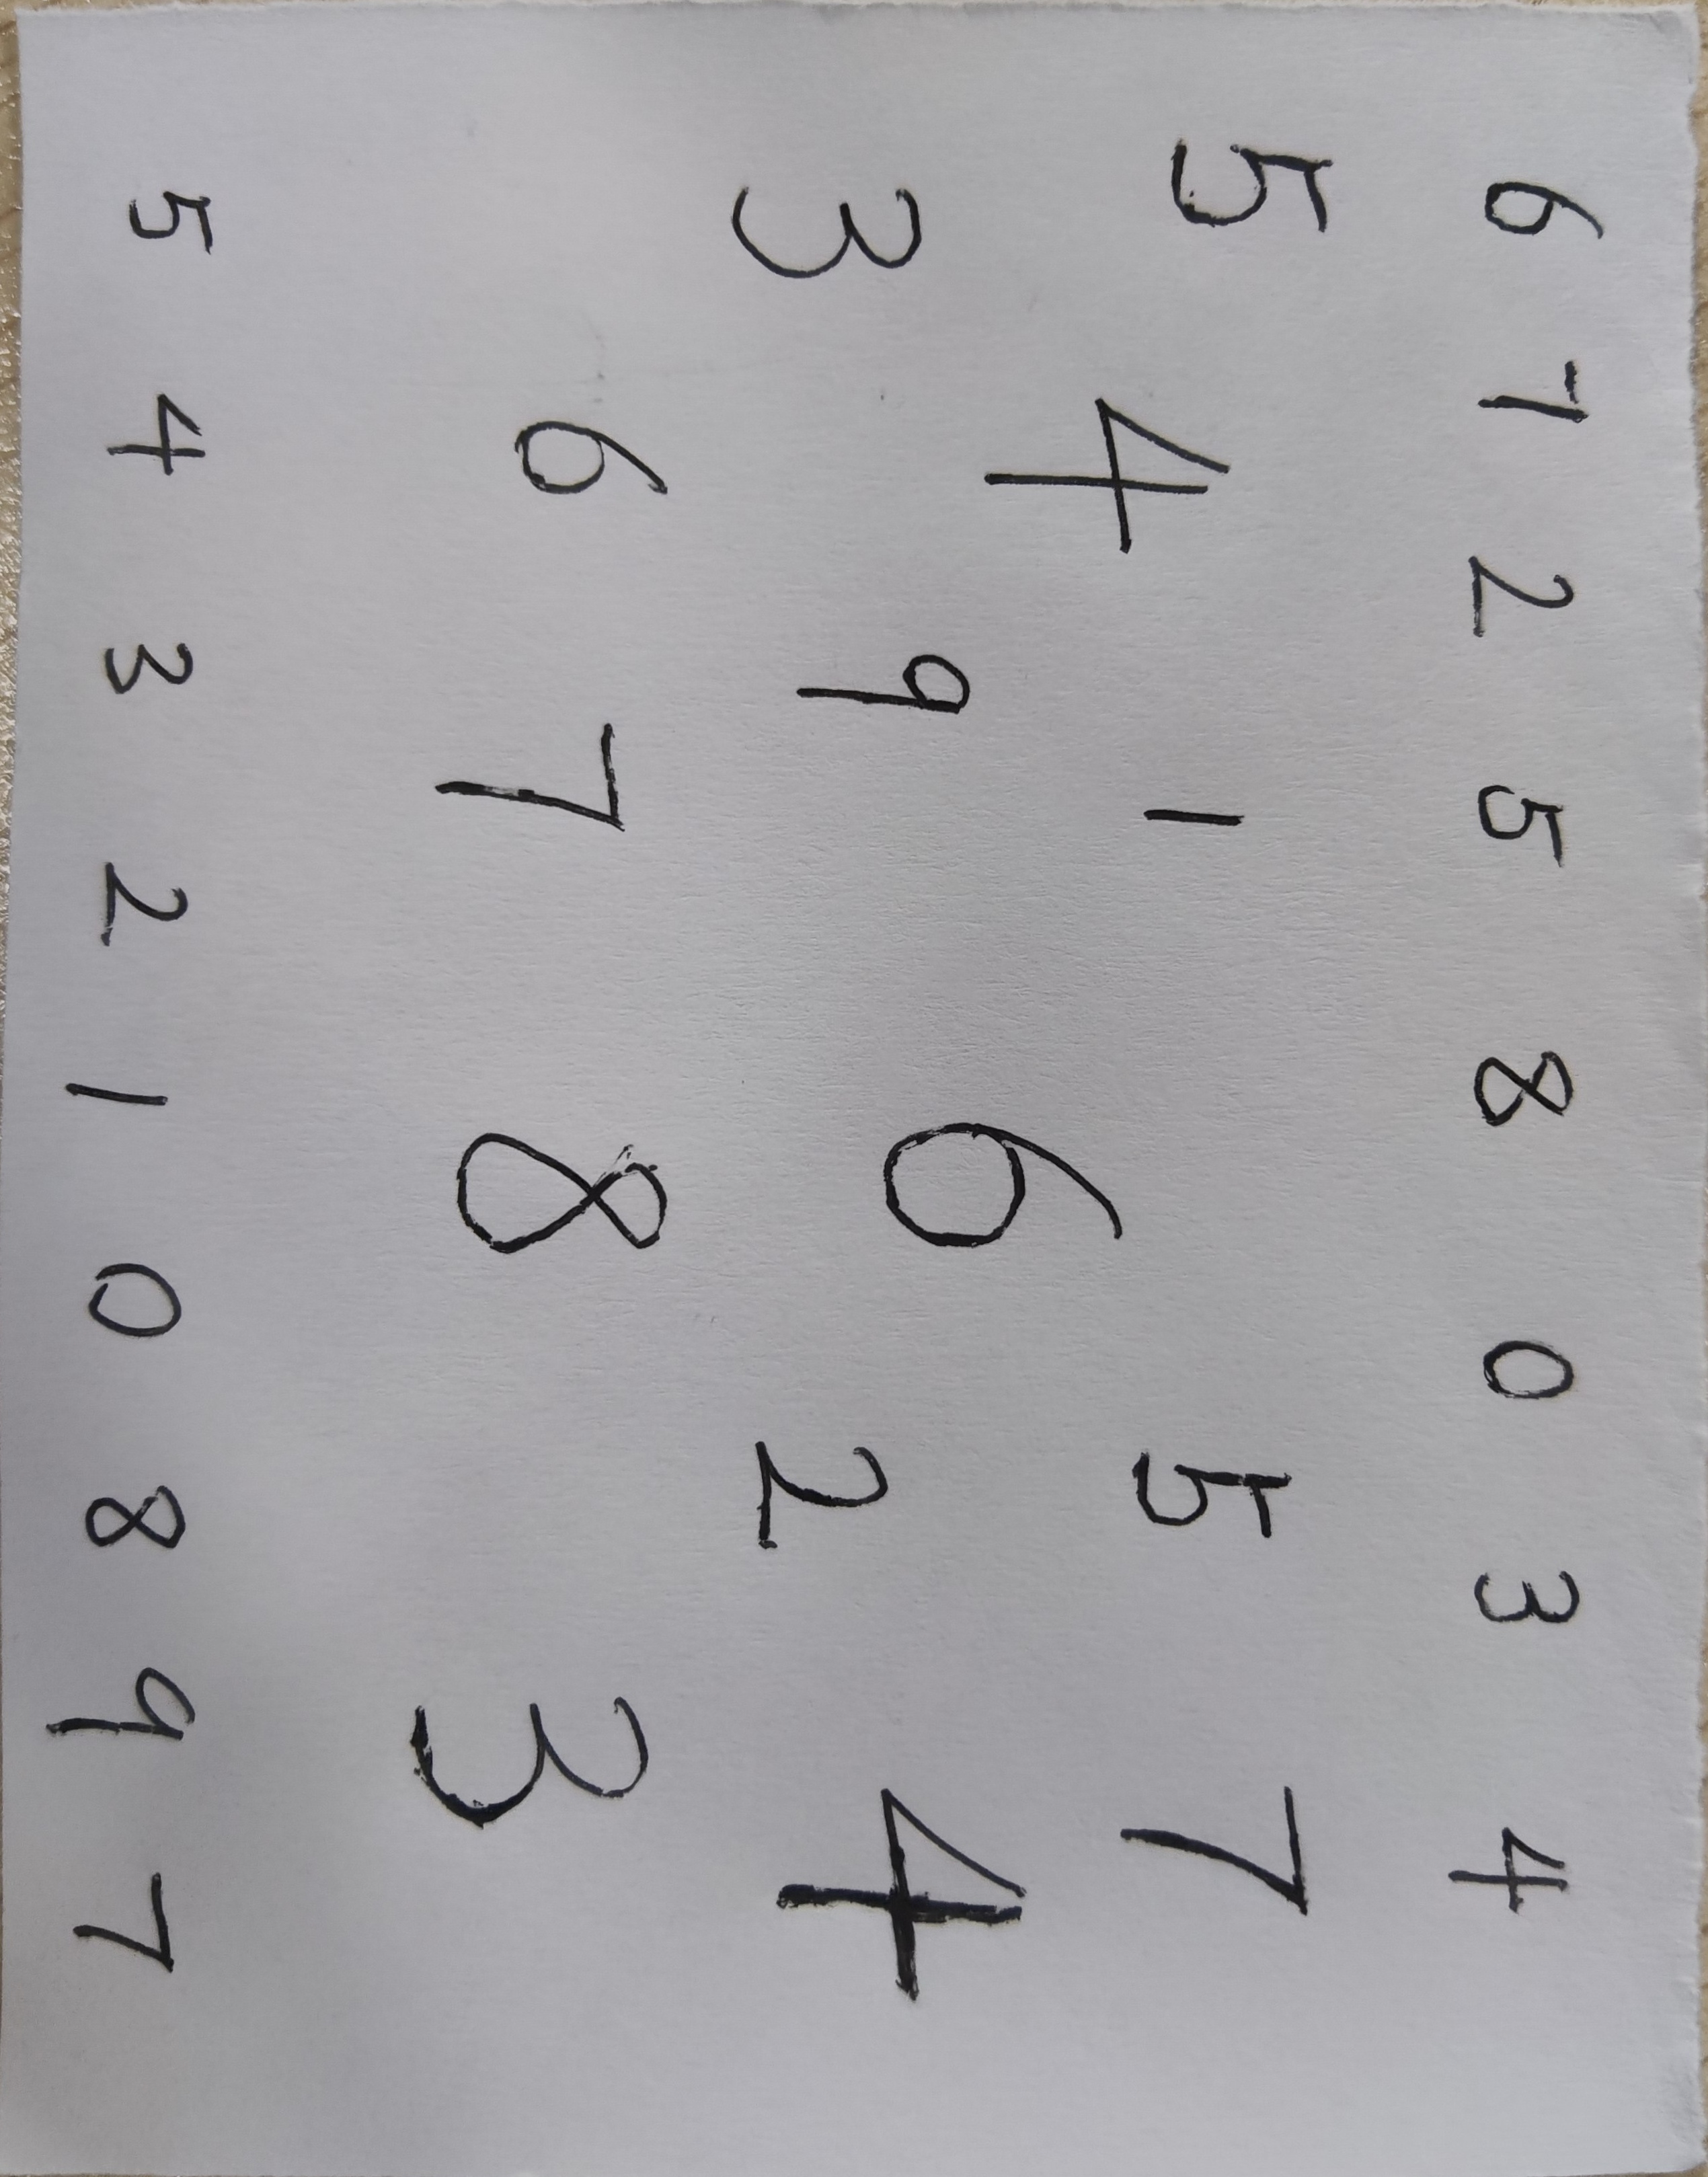 6 7 2 5 8 0 3 4
5 4 1 5 7
3 9 6 2 4
6 7 8 3
5 4 3 2 1 0 8 9 7